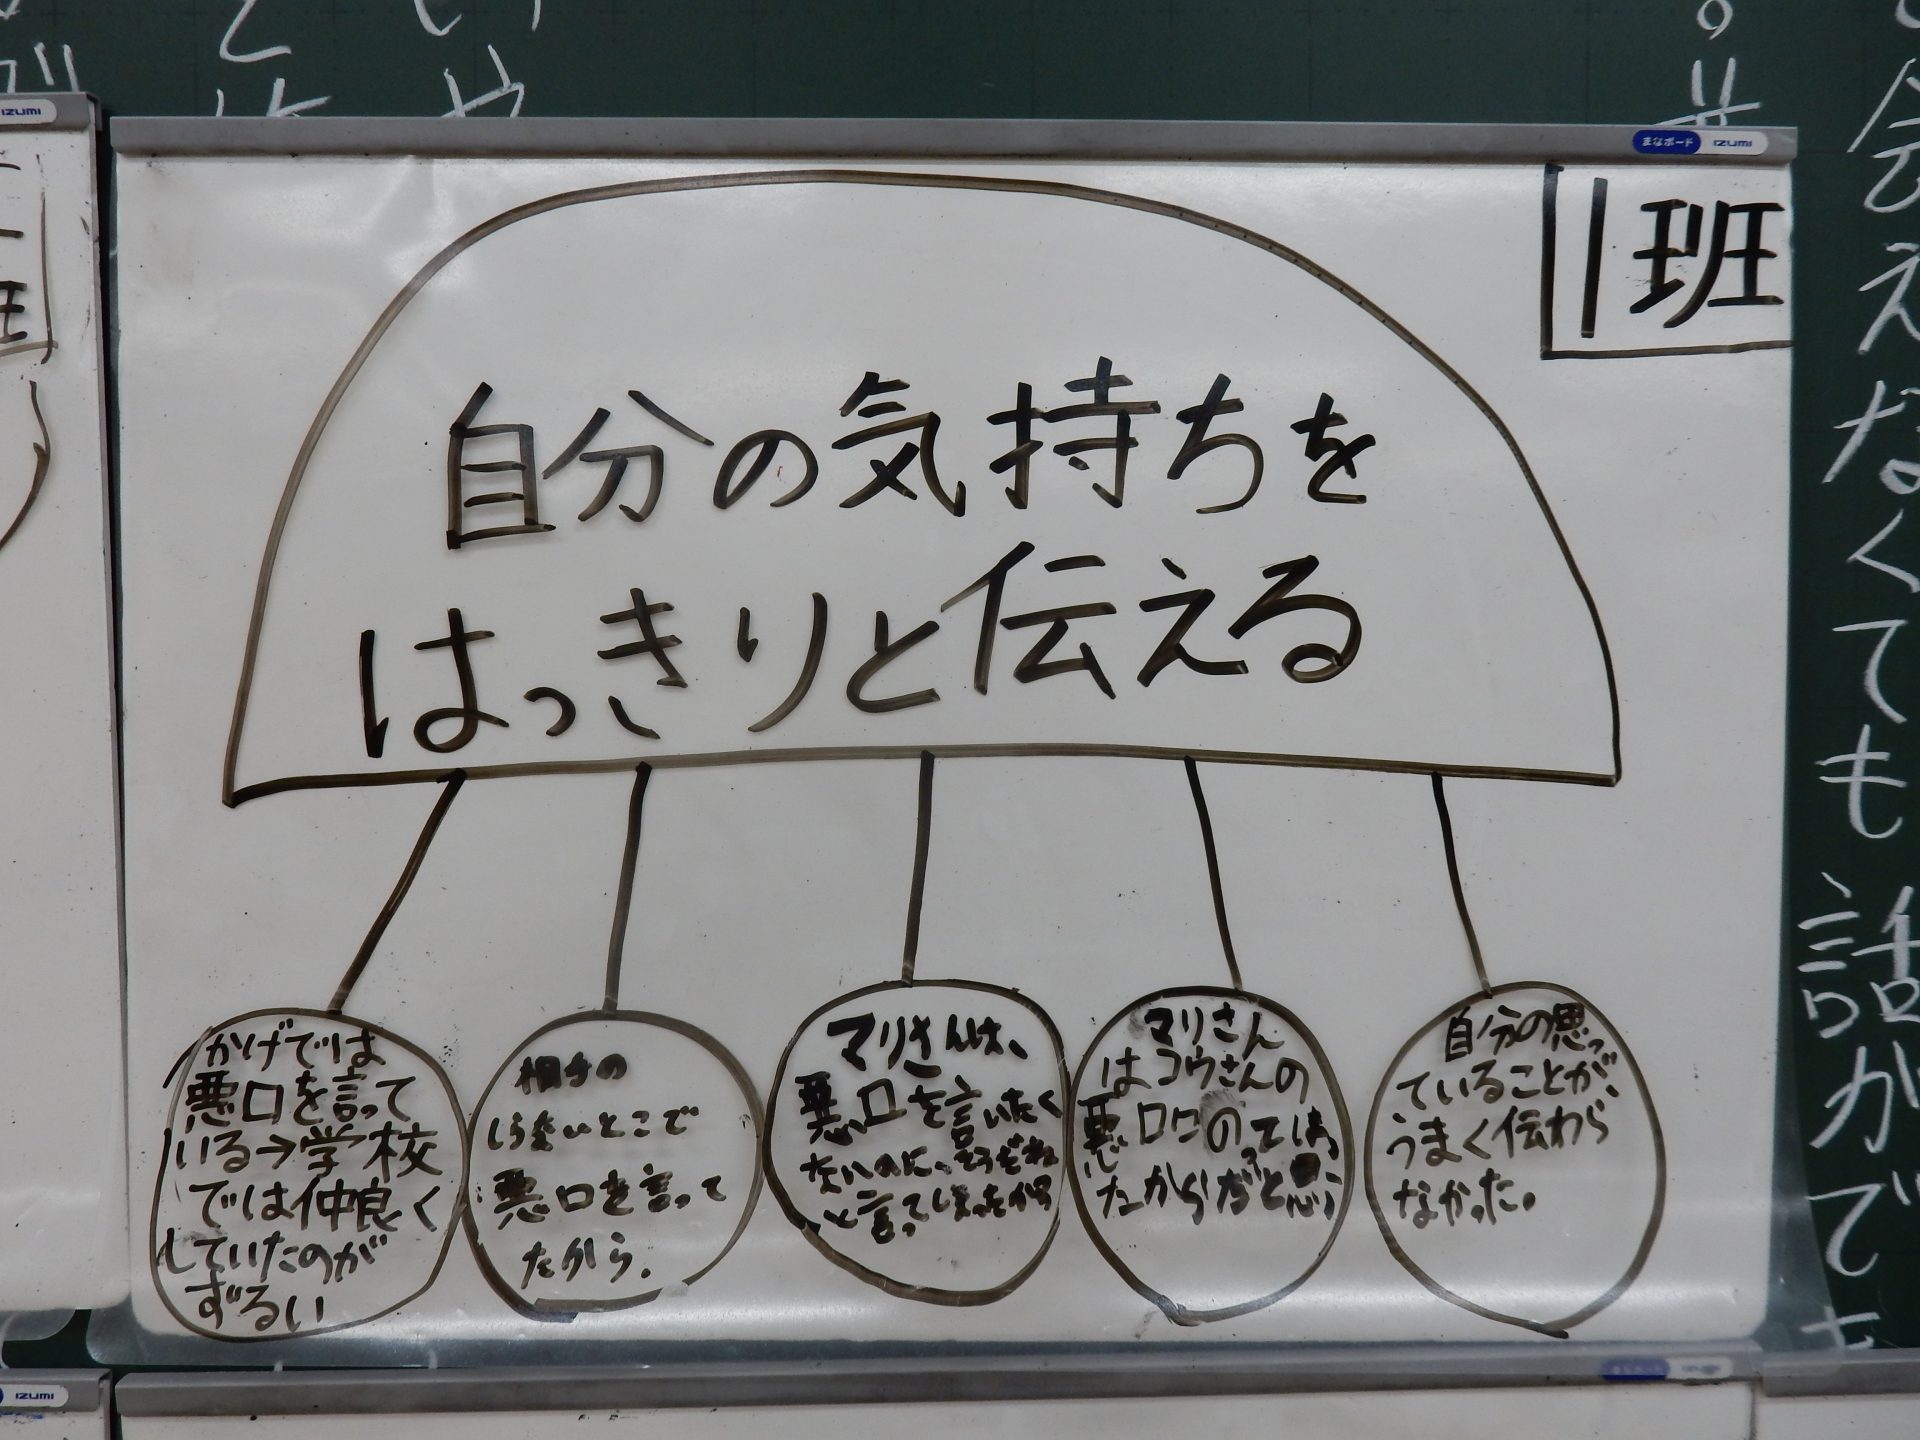 まなボード IZUMI
1班
自分の気持ちを
はっきりと伝える
かげでは
悪口を言って
いる→学校
では仲良く
していたのが
ずるい
相手の
しらないとこで
悪口を言って
たから。
マリさんは、
悪口を言いたく
ないのに、そうだね
と言ってしまったから
マリさん
はコウさんの
悪口
たからだと思う
自分の思っ
ていることが、
うまく伝わら
なかった。
会えなくても
話がで
IZUMI
IZUMI
まなボード IZUMI